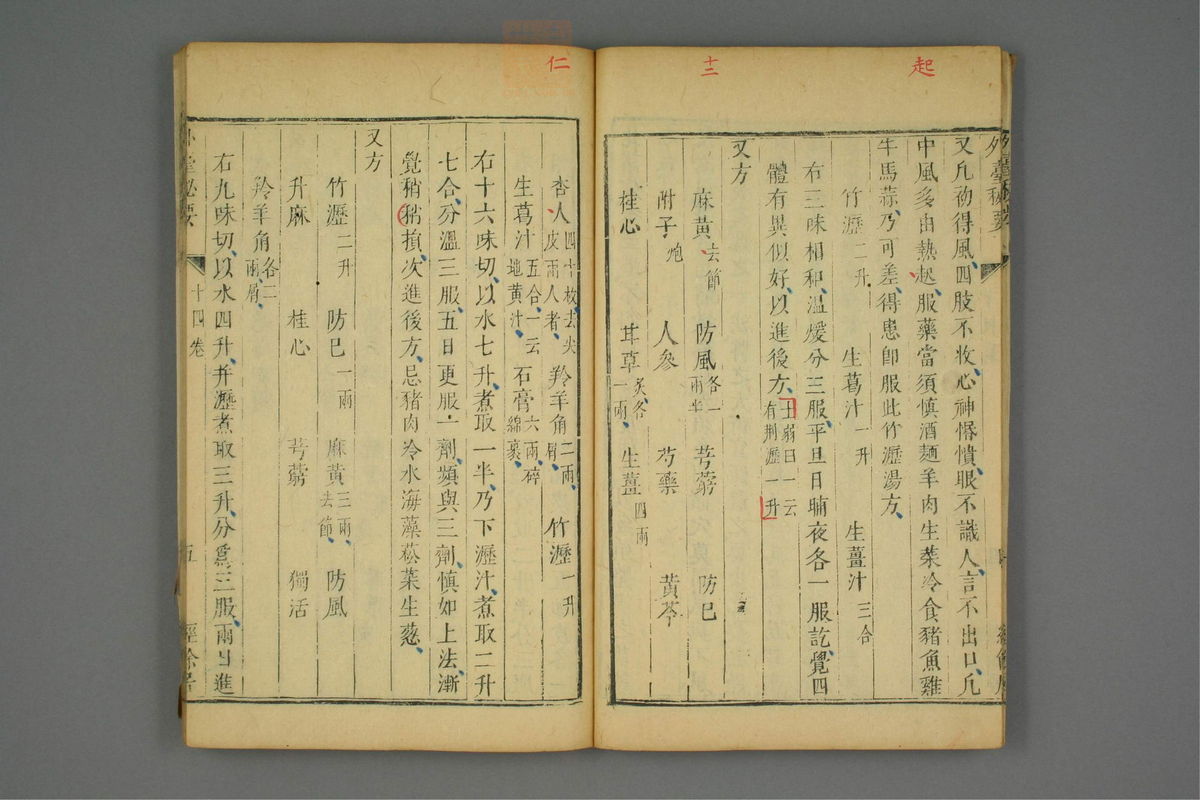 起
十二
仁
外臺秘要
又凡初得風四肢不收心神惛憒眼不識人言不出口凡
中風多由熱起服藥當須慎酒麵羊肉生菜冷食豬魚雞
牛馬蒜乃可差得患卽服此竹瀝湯方
竹瀝二升 生葛汁一升 生薑汁三合
右三味相和溫煖分三服平旦日晡夜各一服訖覺四
體有異似好以進後方王弱曰一云有荆瀝一升
又方
麻黃去節 防風各一兩半 芎藭 防巳
附子炮 人參 芍藥 黃芩
桂心 甘草炙各一兩 生薑四兩
杏人四十枚去尖皮兩人者 羚羊角二兩屑 竹瀝一升
生葛汁五合一云地黃汁 石膏六兩碎綿裹
右十六味切以水七升煮取一半乃下瀝汁煮取二升
七合分溫三服五日更服一劑頻與三劑慎如上法漸
覺稍稍損次進後方忌豬肉冷水海藻菘菜生蔥
又方
竹瀝二升 防巳一兩 麻黃三兩去節 防風
升麻 桂心 芎藭 獨活
羚羊角各二兩屑
右九味切以水四升并瀝煮取三升分爲三服兩日進
外臺秘要 十四卷 五 經餘居